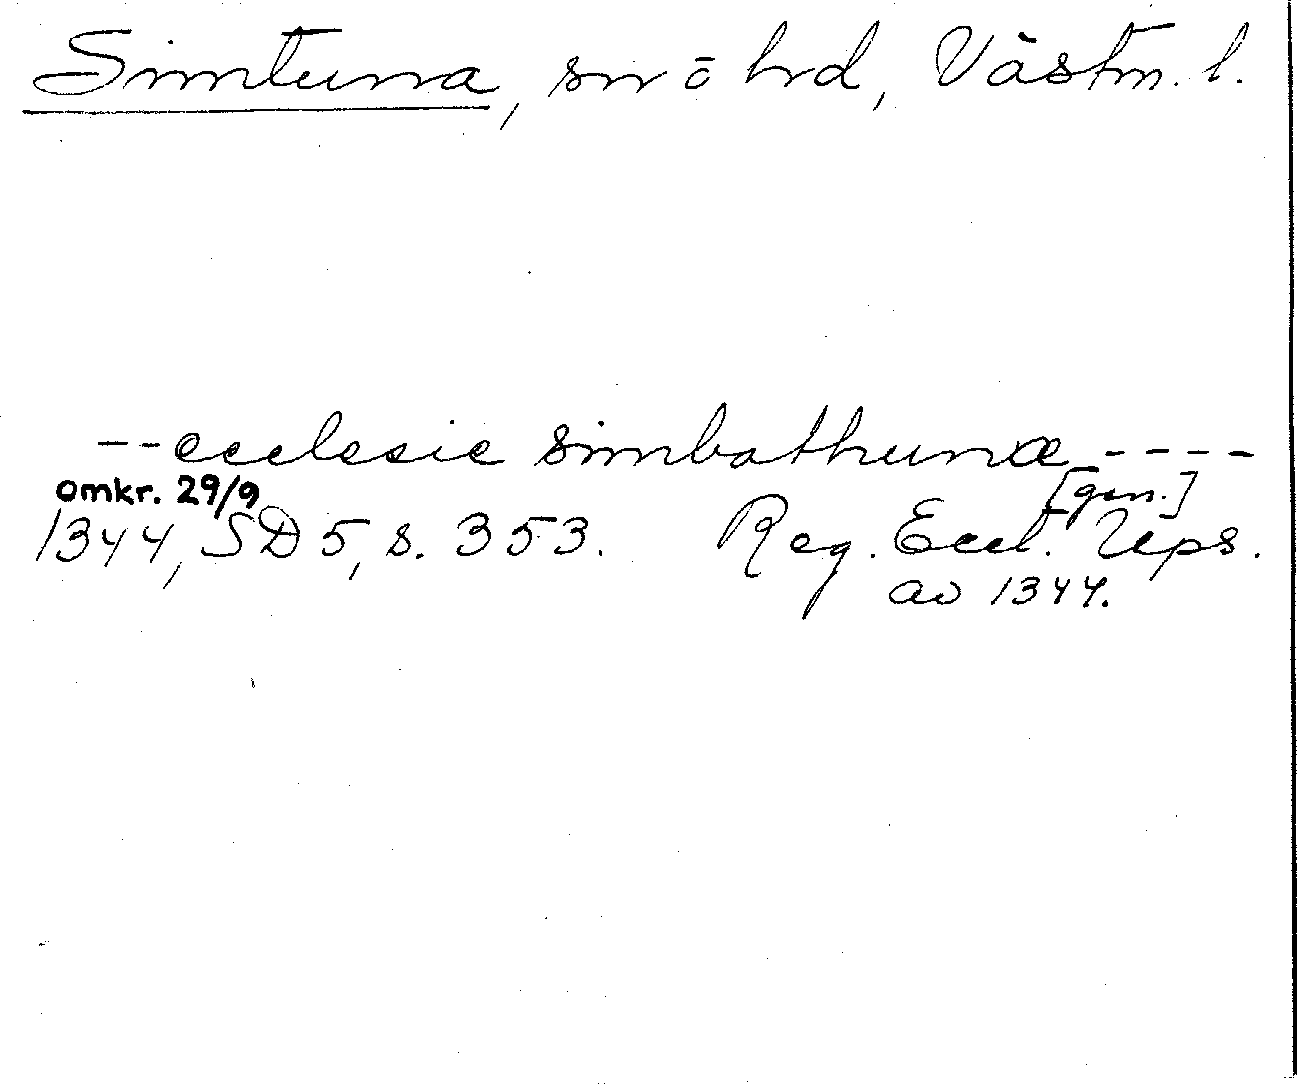 Simtuna, sn o hrd, Västm. l.
--ecclesie simbathunæ----
[gen.]
omkr. 29/9
1344, SD 5, s. 353. Reg. Eccl. Ups.
av 1344.